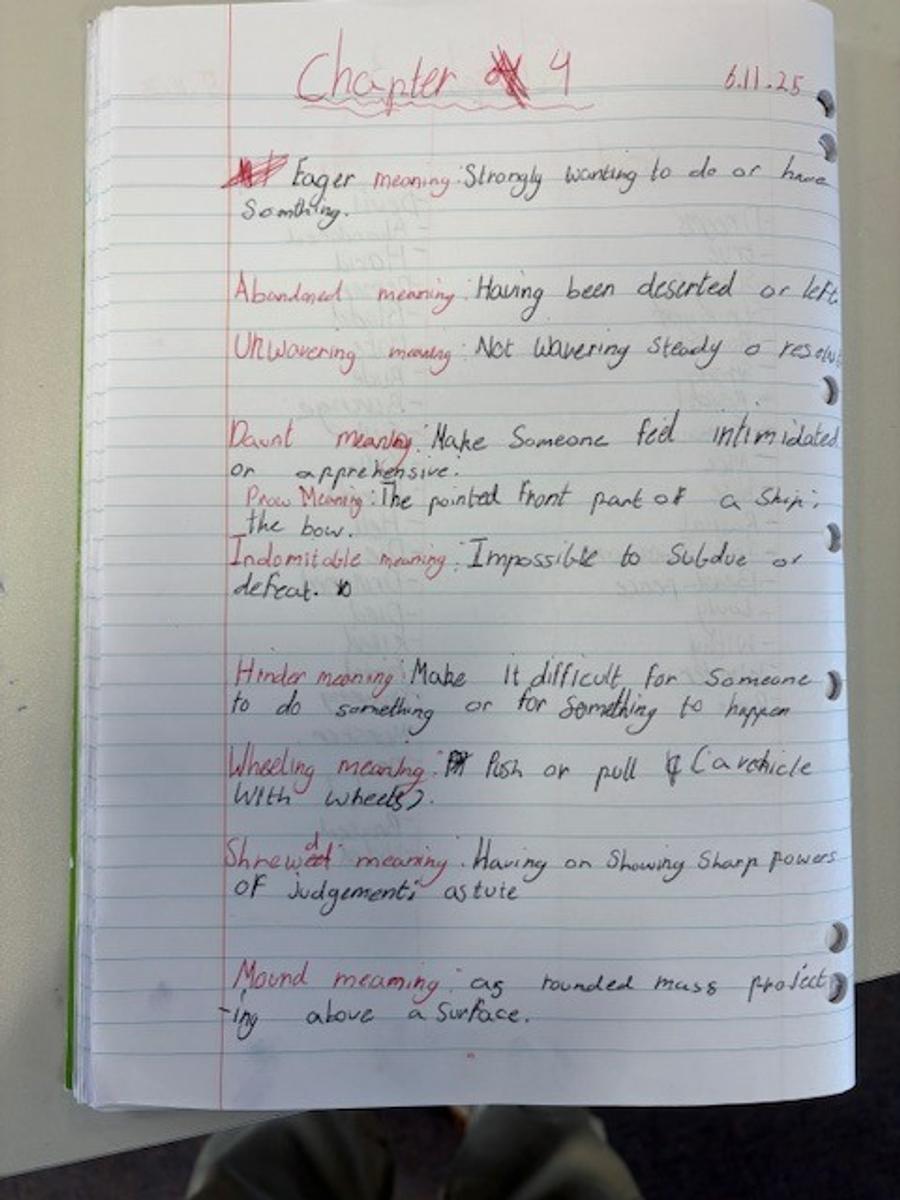 Chapter 4
6.11.25
Eager meaning: Strongly wanting to do or have
Somthing.
Abandoned meaning: Having been deserted or left.
Unwavering meaning: Not Wavering Steady o
Daunt meaning: Make Someone feel intimidated
or apprehensive.
Prow Meaning: The pointed front part of a Ship;
the bow.
Indomitable meaning: Impossible to Subdue or
defeat.
Hinder meaning: Make it difficult for Someone
to do something or for Something to happen
Wheeling meaning: Push or pull (a vehicle
With wheels).
Shrewd meaning: Having or Showing Sharp powers
of judgement; astute
Mound meaming: as rounded mass project
-ing above a Surface.